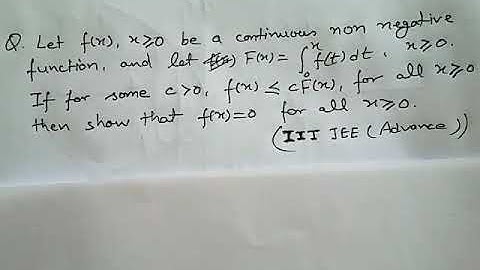 Q. Let f(x), x≥0 be a continuous non negative
function, and let F(x) = ∫₀ˣ f(t) dt, x≥0.
If for some c>0, f(x) ≤ cF(x), for all x≥0
then show that f(x)=0 for all x≥0.
(IIT JEE (Advance))